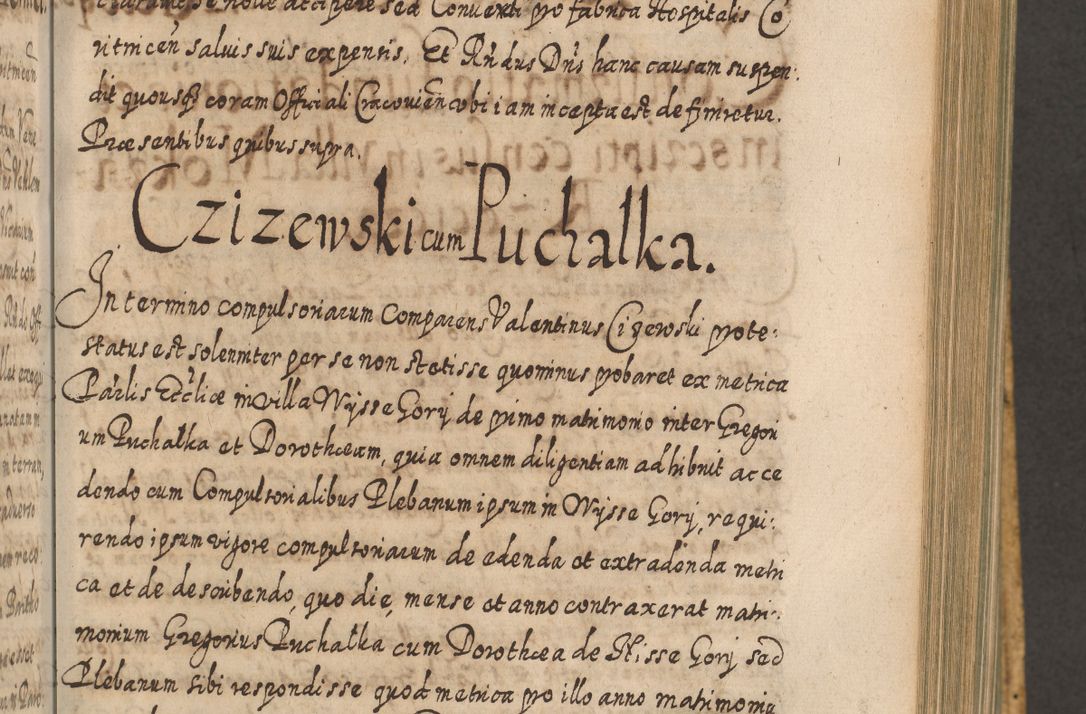 claravit se nolle accipere sed Conventi pro fabrica Hospitalis Co
ritnicen̄ salvis suis expensis, Et R̄ndus Dn̄s hanc causam suspen:
dit quousq; coram Officiali Cracovien̄ ubi iam incepta est definietur.
Præsentibus quibus supra.
Czizewski cum Puchałka.
In termino compulsoriarum Comparens Valentinus Cizewski prote:
status est solenniter per se non stetisse quominus probaret ex metrica
Par̄lis Ecc̄liæ in villa Wysse Gory de primo matrimonio inter Gregori
um Puchałka et Dorotheam, quia omnem diligentiam adhibuit acce
dendo cum Compulsorialibus Plebanum ipsum in Wysse Gory, requi:
rendo ipsum vigore compulsoriarum de edenda et extradenda metri
ca et de describendo, quo die, mense et anno contraxerat matri:
monium Gregorius Puchałka cum Dorothea de Nisse Gory sed
Plebanum sibi respondisse quod metrica pro illo anno matrimonia